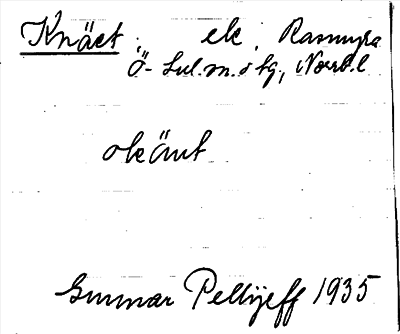 Knäet; ek. Rasmyra
Ö-Lul. m. o tg., Norrb. l
okänt
Gunnar Pellijeff 1935